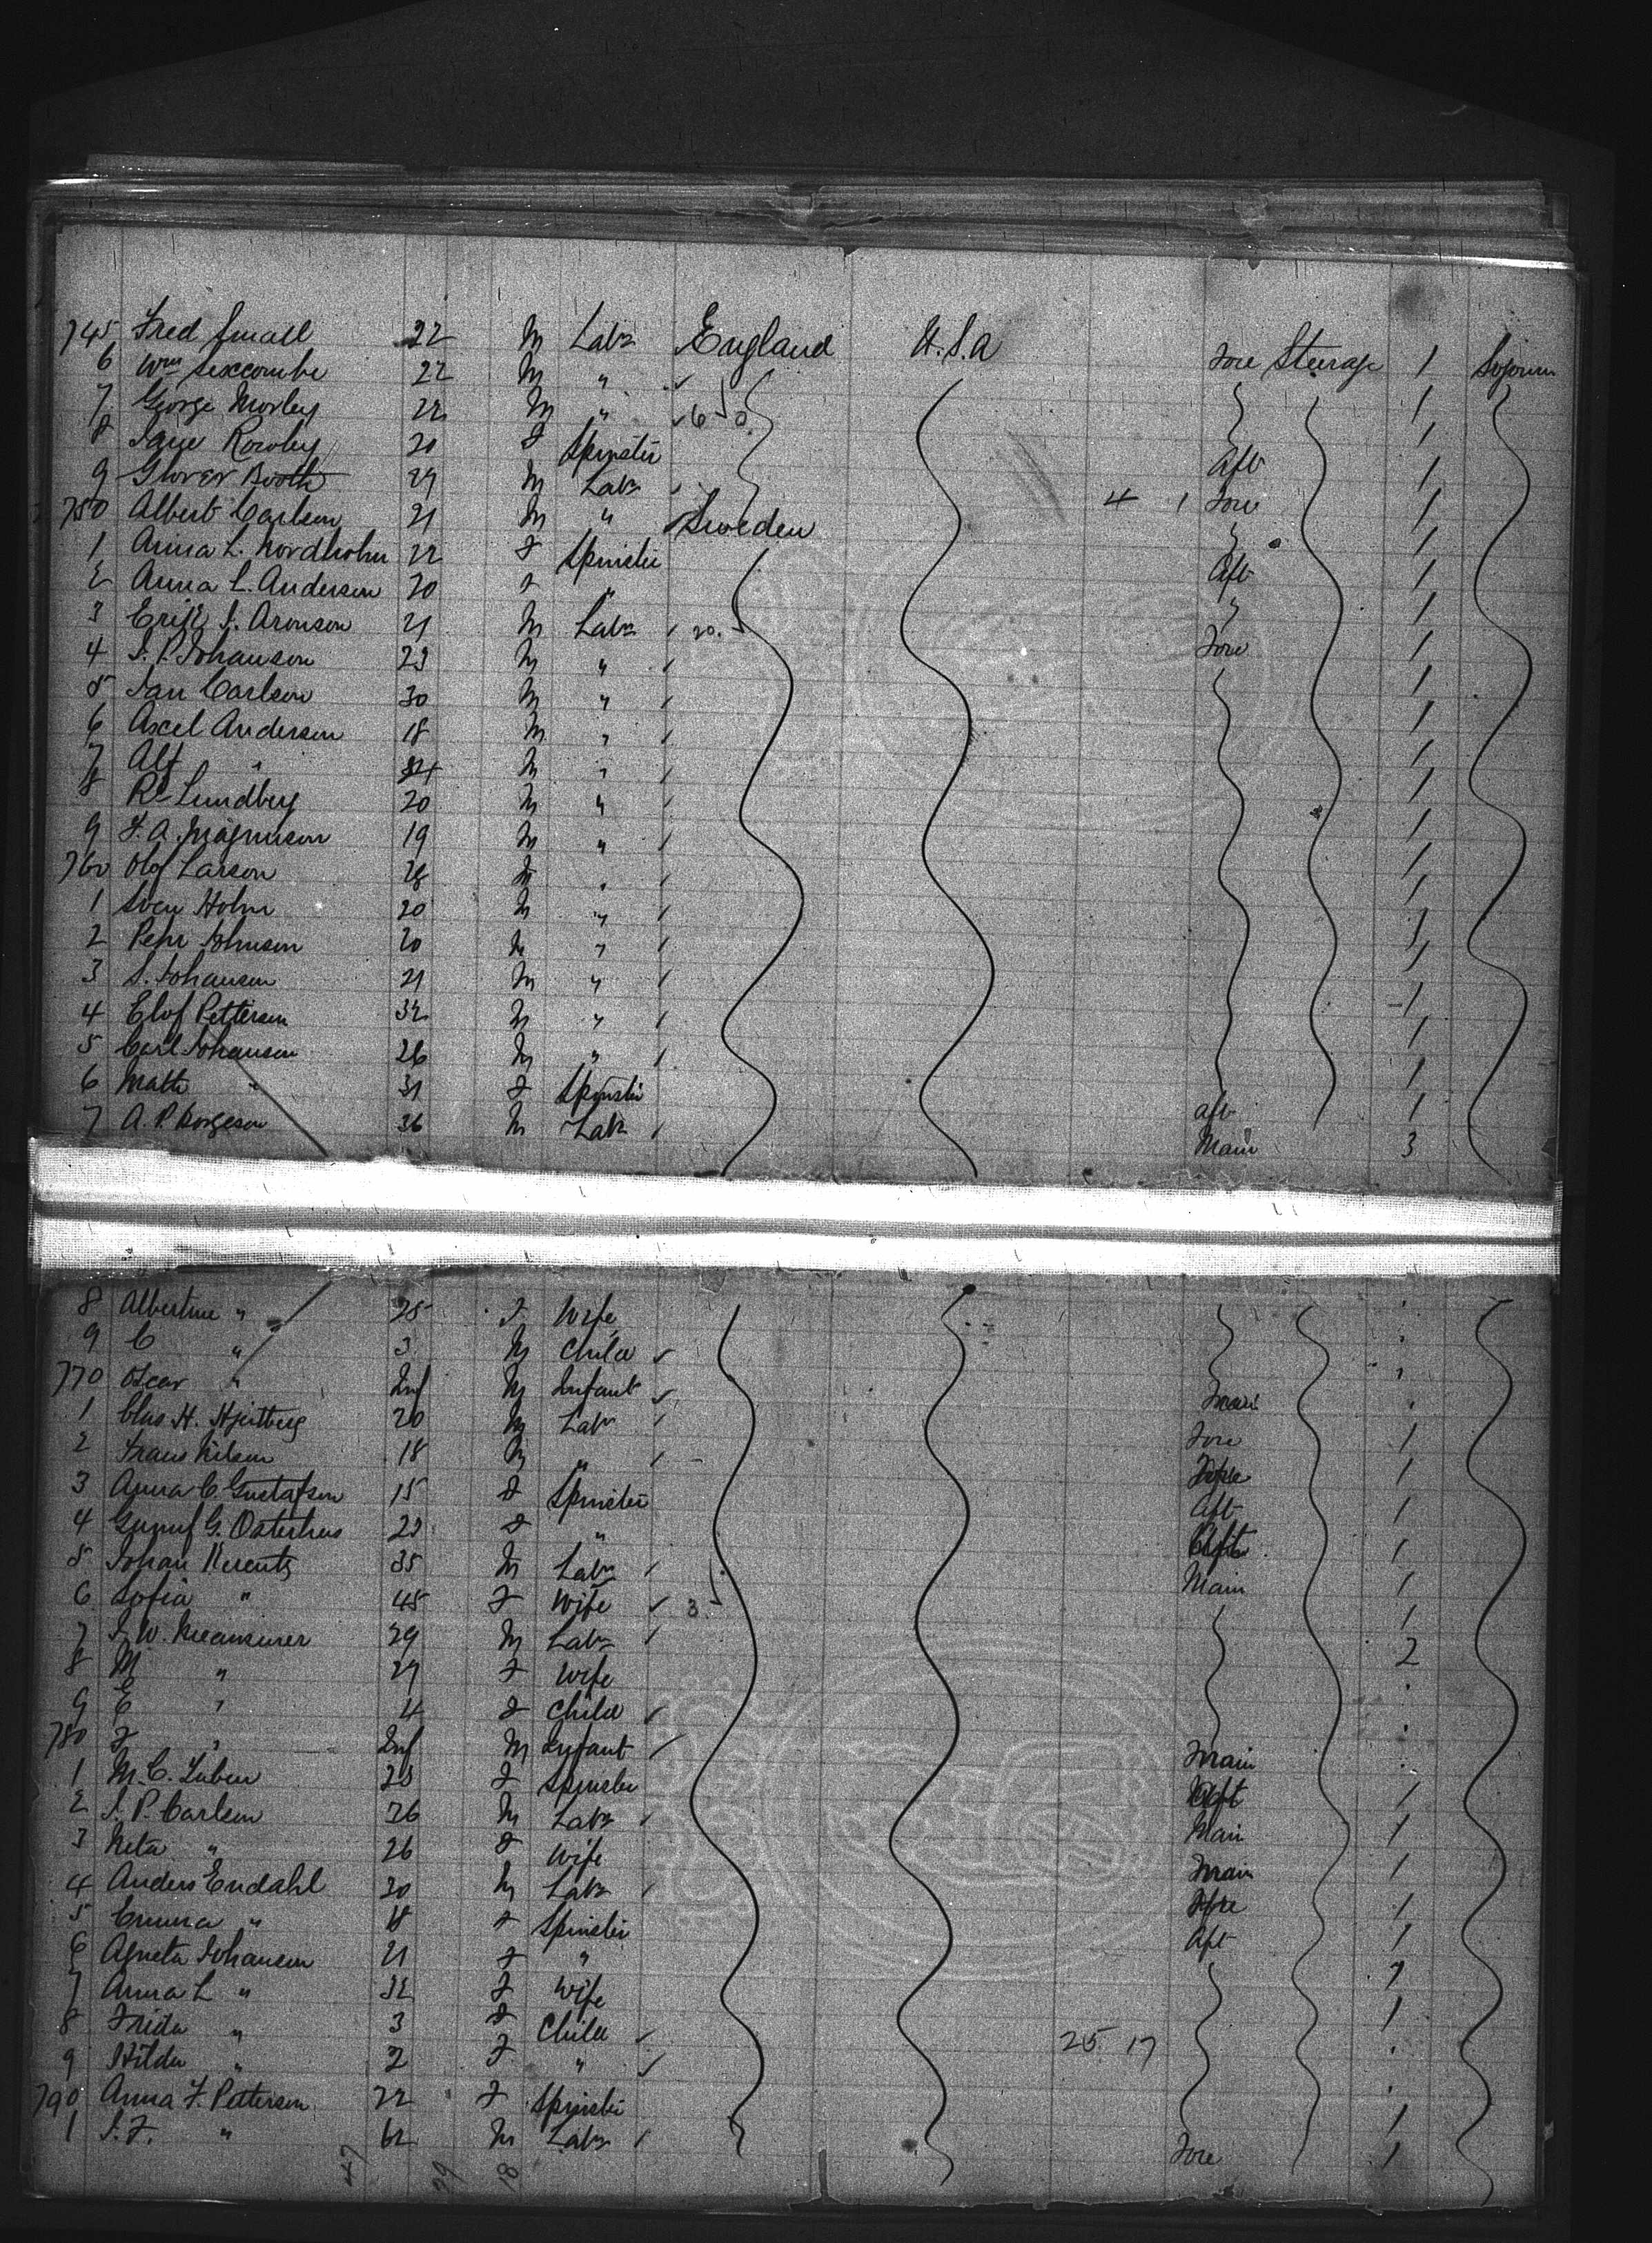 745 Fred Small 22 M Labr England U.S.A Fore Steerage 1 Sojourn
6 Wm Sexcombe 22 M " 1
7 George Morley 22 M " 6 1
8 Jane Rowley 20 F Spinster Aft 1
9 Glover Booth 29 M Labr 4 1 Fore 1
750 Albert Carlson 21 M " Sweden 1
1 Anna L. Nordholm 22 F Spinster Aft 1
2 Anna L. Anderson 20 F " " 1
3 Erik J. Aronson 21 M Labr 20 Fore 1
4 J. P. Johanson 23 M " 1
5 Jan Carlson 30 M " 1
6 Axcel Anderson 18 M " 1
7 Alf " M " 1
8 Rd Lundberg 20 M " 1
9 F. A. Magnuson 19 M " 1
760 Olof Larson 28 M " 1
1 Sven Holm 20 M " 1
2 Pehr Johnson 20 M " 1
3 S. Johanson 21 M " 1
4 Elof Petterson 32 M " 1
5 Carl Johanson 26 M " 1
6 Math " 31 F Spinster Aft 1
7 A. P. Borgeson 36 M Labr Main 3
8 Albertine " 25 F Wife
9 C " 3 M Child
770 Oscar " Inf M Infant Main
1 Clas H. 20 M Labr Fore 1
2 Frans Nilson 18 M " Fore 1
3 Anna C. Gustafson 15 F Spinster Aft 1
4 G. 23 F " Aft 1
5 Johan 35 M Labr Main 1
6 Sofia " 45 F Wife 3 1
7 J. W. 29 M Labr 2
8 M " 29 F Wife
9 E " 4 F Child
780 F " Inf M Infant Main
1 M. C. 23 F Spinster Aft 1
2 J. P. Carlson 26 M Labr Main 1
3 Neta " 26 F Wife Main 1
4 Anders Endahl 20 M Labr Fore 1
5 Emma " 18 F Spinster Aft 1
6 Agneta Johanson 21 F " 1
7 Anna L " 32 F Wife 1
8 Frida " 3 F Child 25 17
9 Hilda " 2 F "
790 Anna F. Petterson 22 F Spinster 1
1 J. F. " 62 M Labr Fore 1
47 29 18